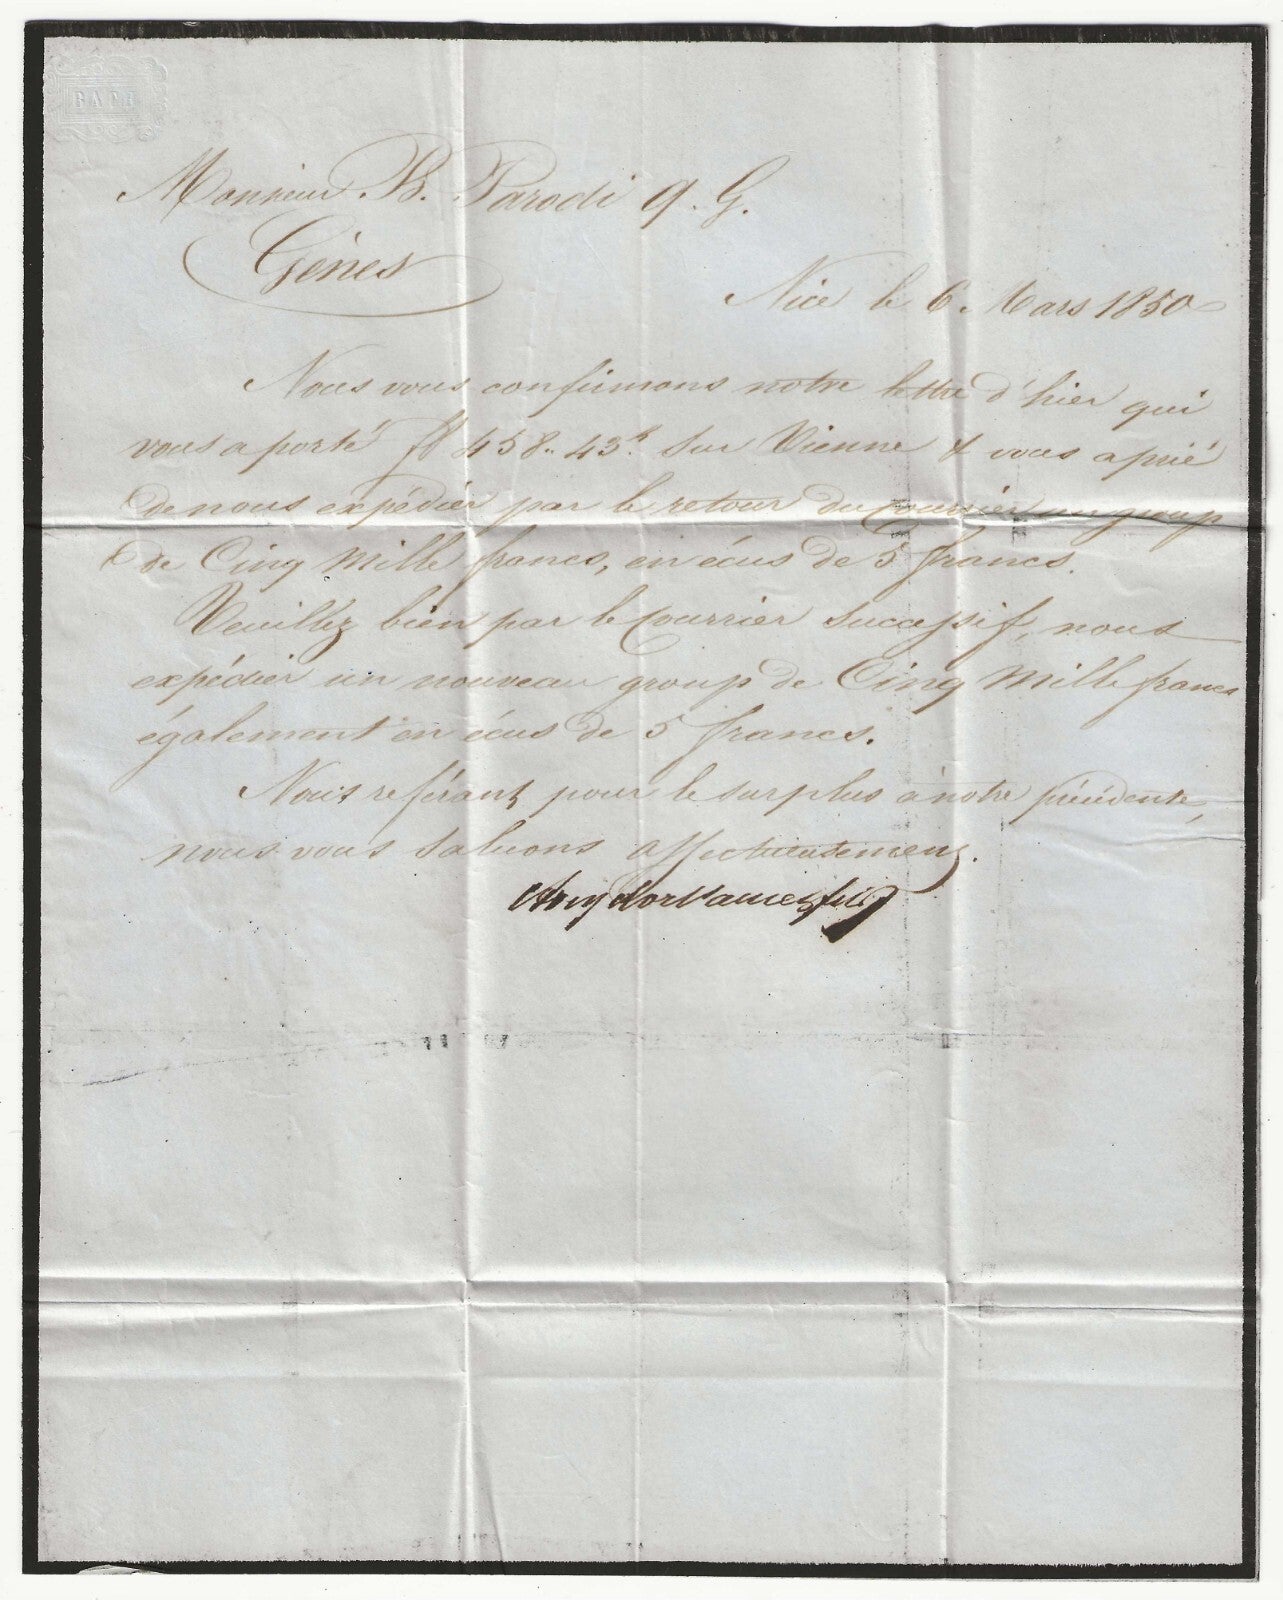 BATH
Monsieur B. Parodi q. G.
Gènes
Nice le 6 Mars 1850
Nous vous confirmons notre lettre d'hier qui
vous a porté fl 458.. 43k. sur Vienne & vous a prié
de nous expédier par le retour du Courrier un group
de Cinq Mille francs, en écus de 5 francs.
Veuillez bien par le Courrier successif, nous
expédier un nouveau group de Cinq Mille francs
également en écus de 5 francs.
Nous referant pour le surplus à notre précédente,
nous vous saluons affectueusement.